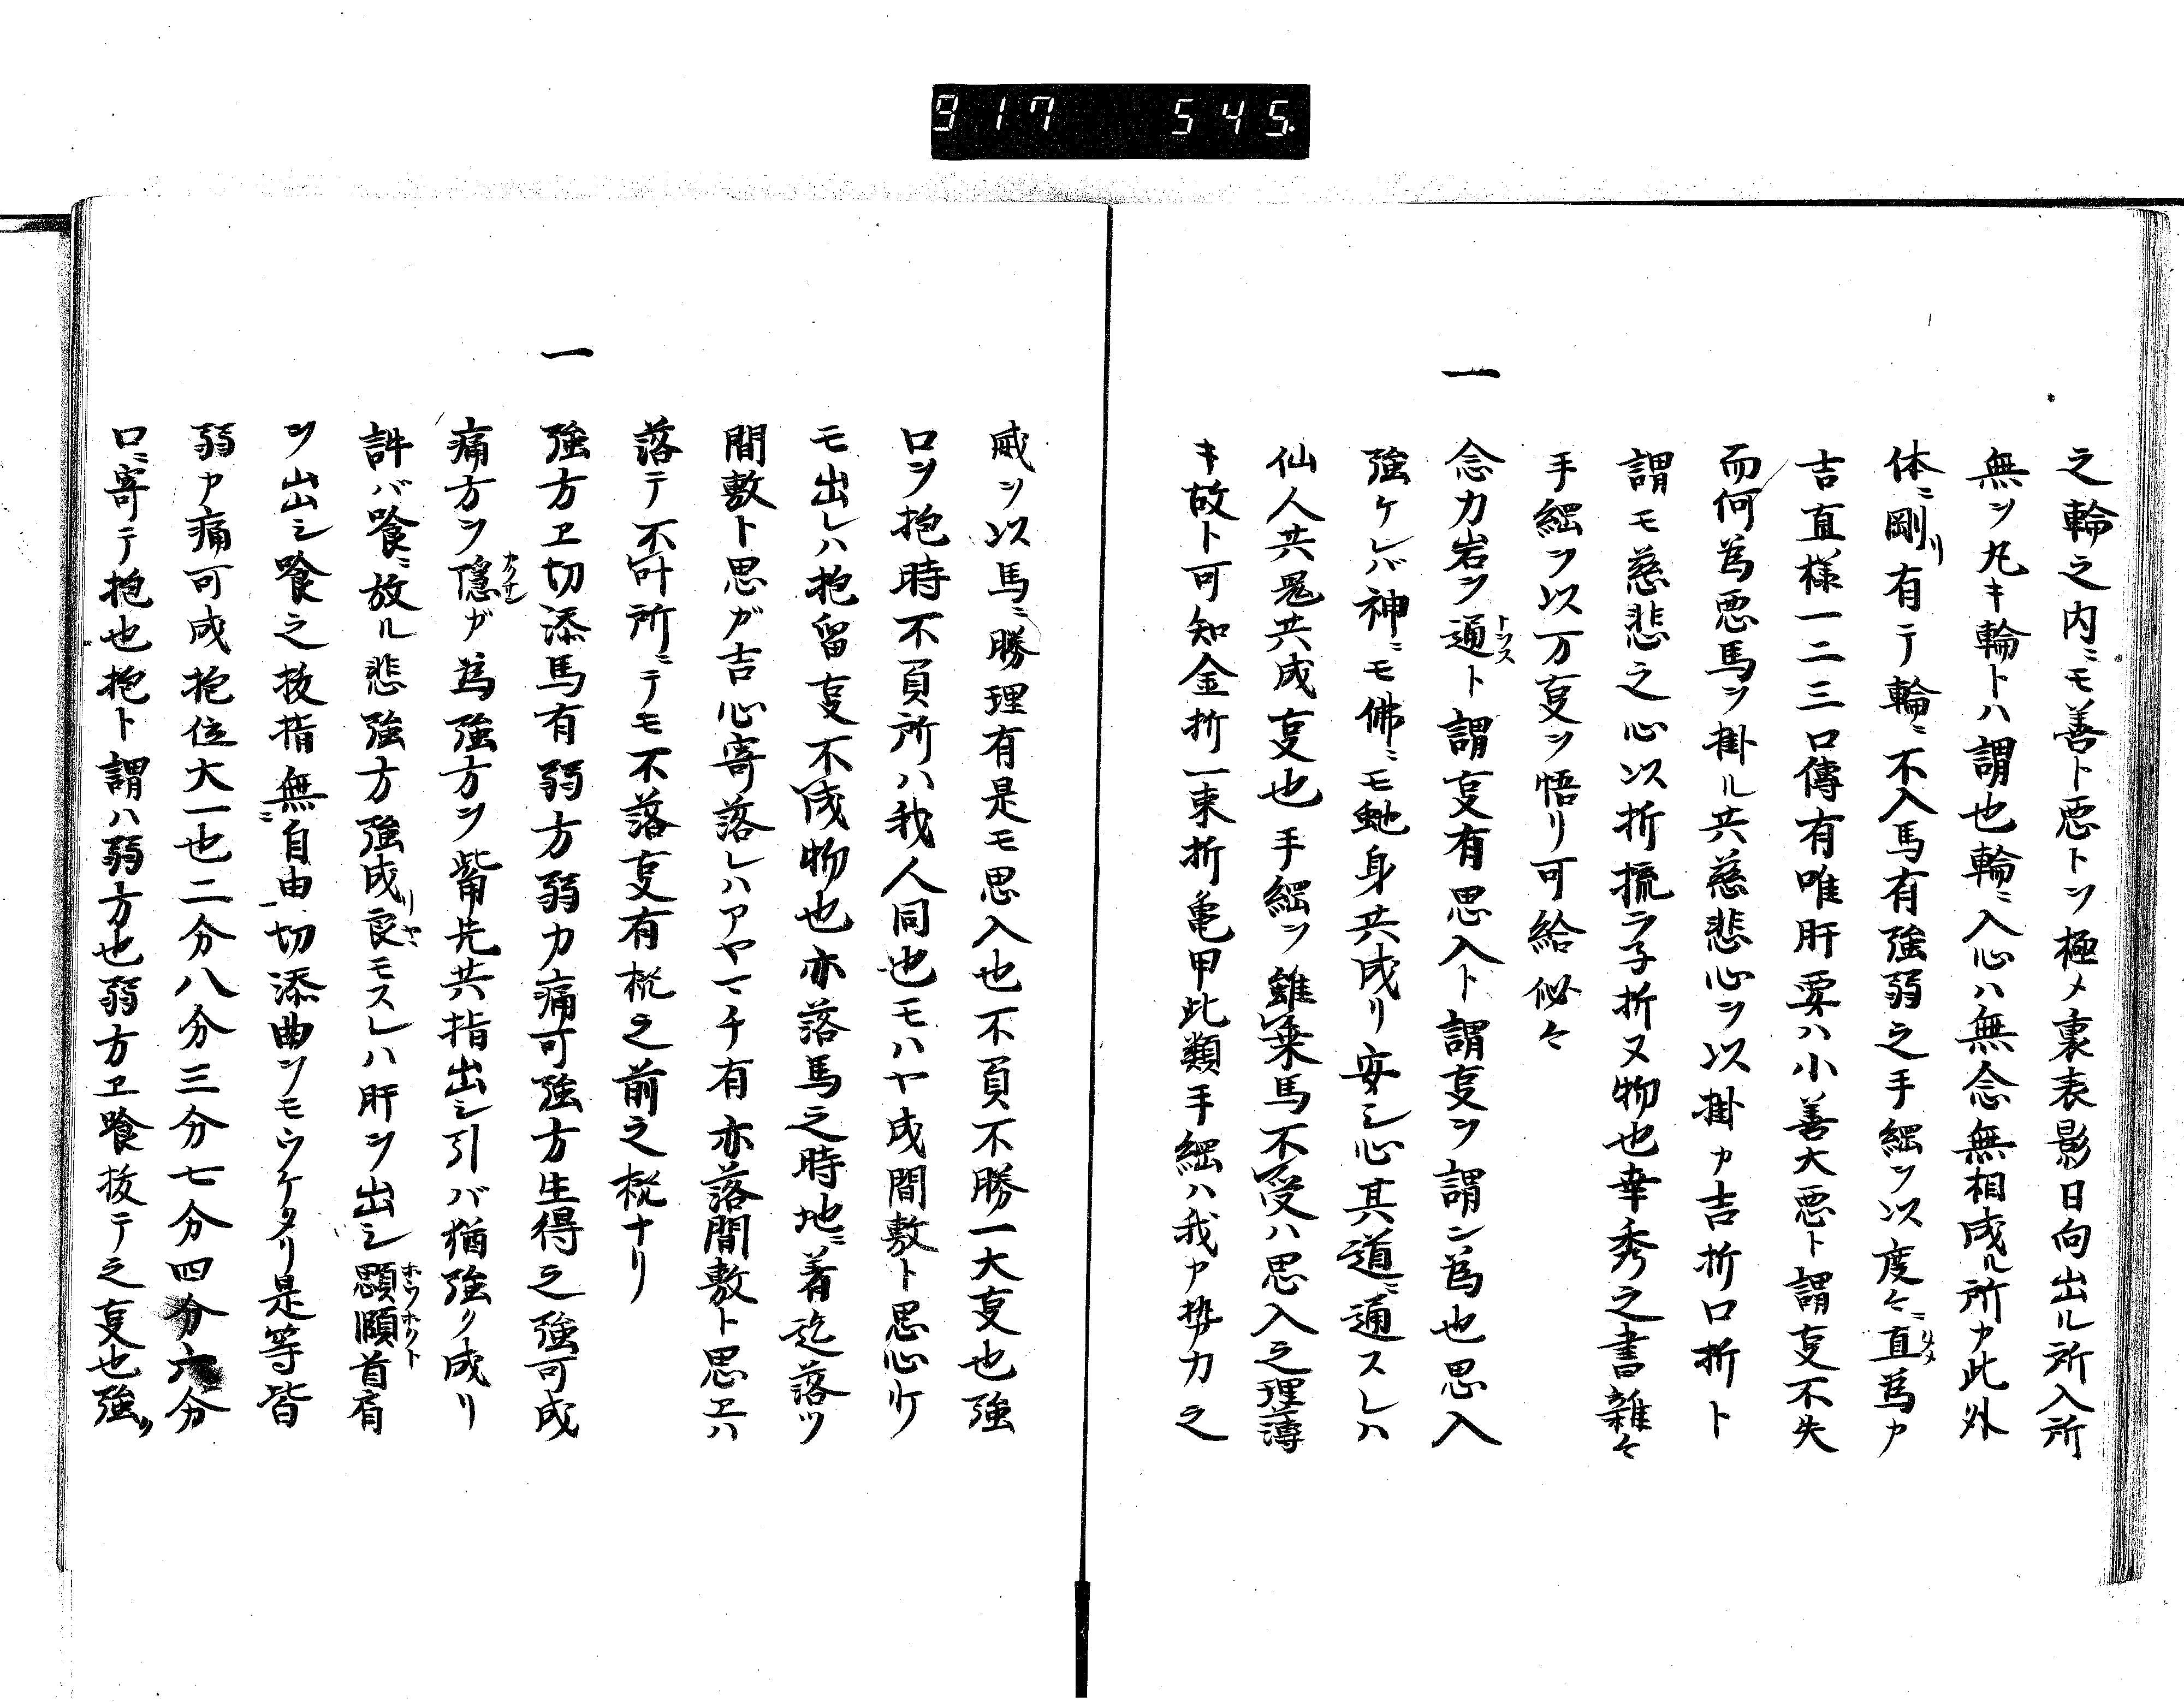 917 545.
之輪之内ニモ善ト悪トヲ極メ裏表影日向出ル所入所
無ヲ丸キ輪トハ謂也輪ニ入心ハ無念無相成ル所カ此外
体ニ剛リ有テ輪ニ不入馬有強弱之手綱ヲ以度々ニ直タメ為カ
吉直様一二三口傳有唯肝要ハ小善大悪ト謂叓不失
而何為悪馬ヲ掛ル共慈悲心ヲ以掛カ吉折口折ト
謂モ慈悲之心以折撓ラ子折ヌ物也幸秀之書雑々
手綱ヲ以万叓ヲ悟リ可給似々
一 念力岩ヲ通トヲスト謂叓有思入ト謂叓ヲ謂ン為也思入
強ケレバ神ニモ佛ニモ虵身共成リ安シ心其道ニ通スレハ
仙人共鬼共成叓也手綱ヲ雖乗馬不受ハ思入之理薄
キ故ト可知金折一束折亀甲此類手綱ハ我カ勢力之
威ヲ以馬ニ勝理有是モ思入也不負不勝一大叓也強
口ヲ抱時不負所ハ我人同也モハヤ成間敷ト思心所
モ出レハ抱留叓不成物也亦落馬之時地ニ着迄落ツ
間敷ト思ガ吉心寄落レハアヤマチ有亦落間敷ト思エハ
落テ不叶所ニテモ不落叓有枕之前之枕ナリ
一 強方エ切添馬有弱方弱カ痛可強方生得之強可成
痛方ヲ隠カクサンガ為強方ヲ觜先共指出シ引バ猶強ク成リ
許バ喰ニ放ル悲強方強成リ良ヤニモスレハ肝ヲ出シ顋頤ホウホクト首肩
ヲ出シ喰之抜指無ニ自由一切添曲ヲモウケタリ是等皆
弱カ痛可成抱位大一也二分八分三分七分四分六分
口ニ寄テ抱也抱ト謂ハ弱方也弱方エ喰抜テ之叓也強リ